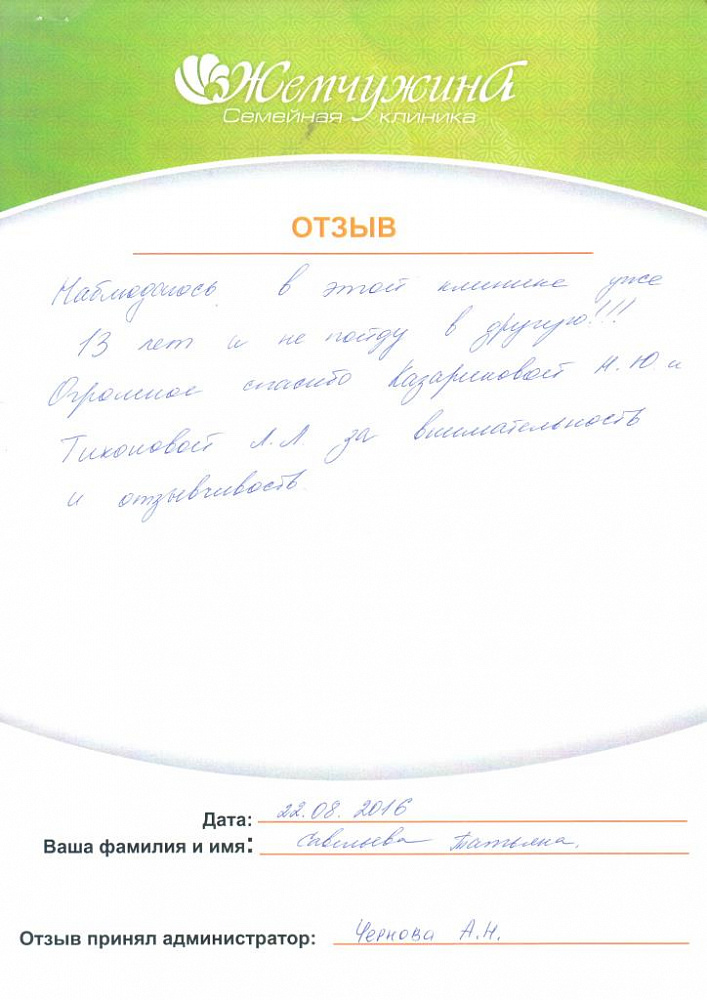 Жемчужина
Семейная клиника
ОТЗЫВ
Наблюдаюсь в этой клинике уже
13 лет и не пойду в другую!!!
Огромное спасибо Казариновой Н.Ю. и
Тихоновой Л.Л. за внимательность
и отзывчивость.
Дата: 22.08.2016
Ваша фамилия и имя: Савельева Татьяна.
Отзыв принял администратор: Чернова А.Н.